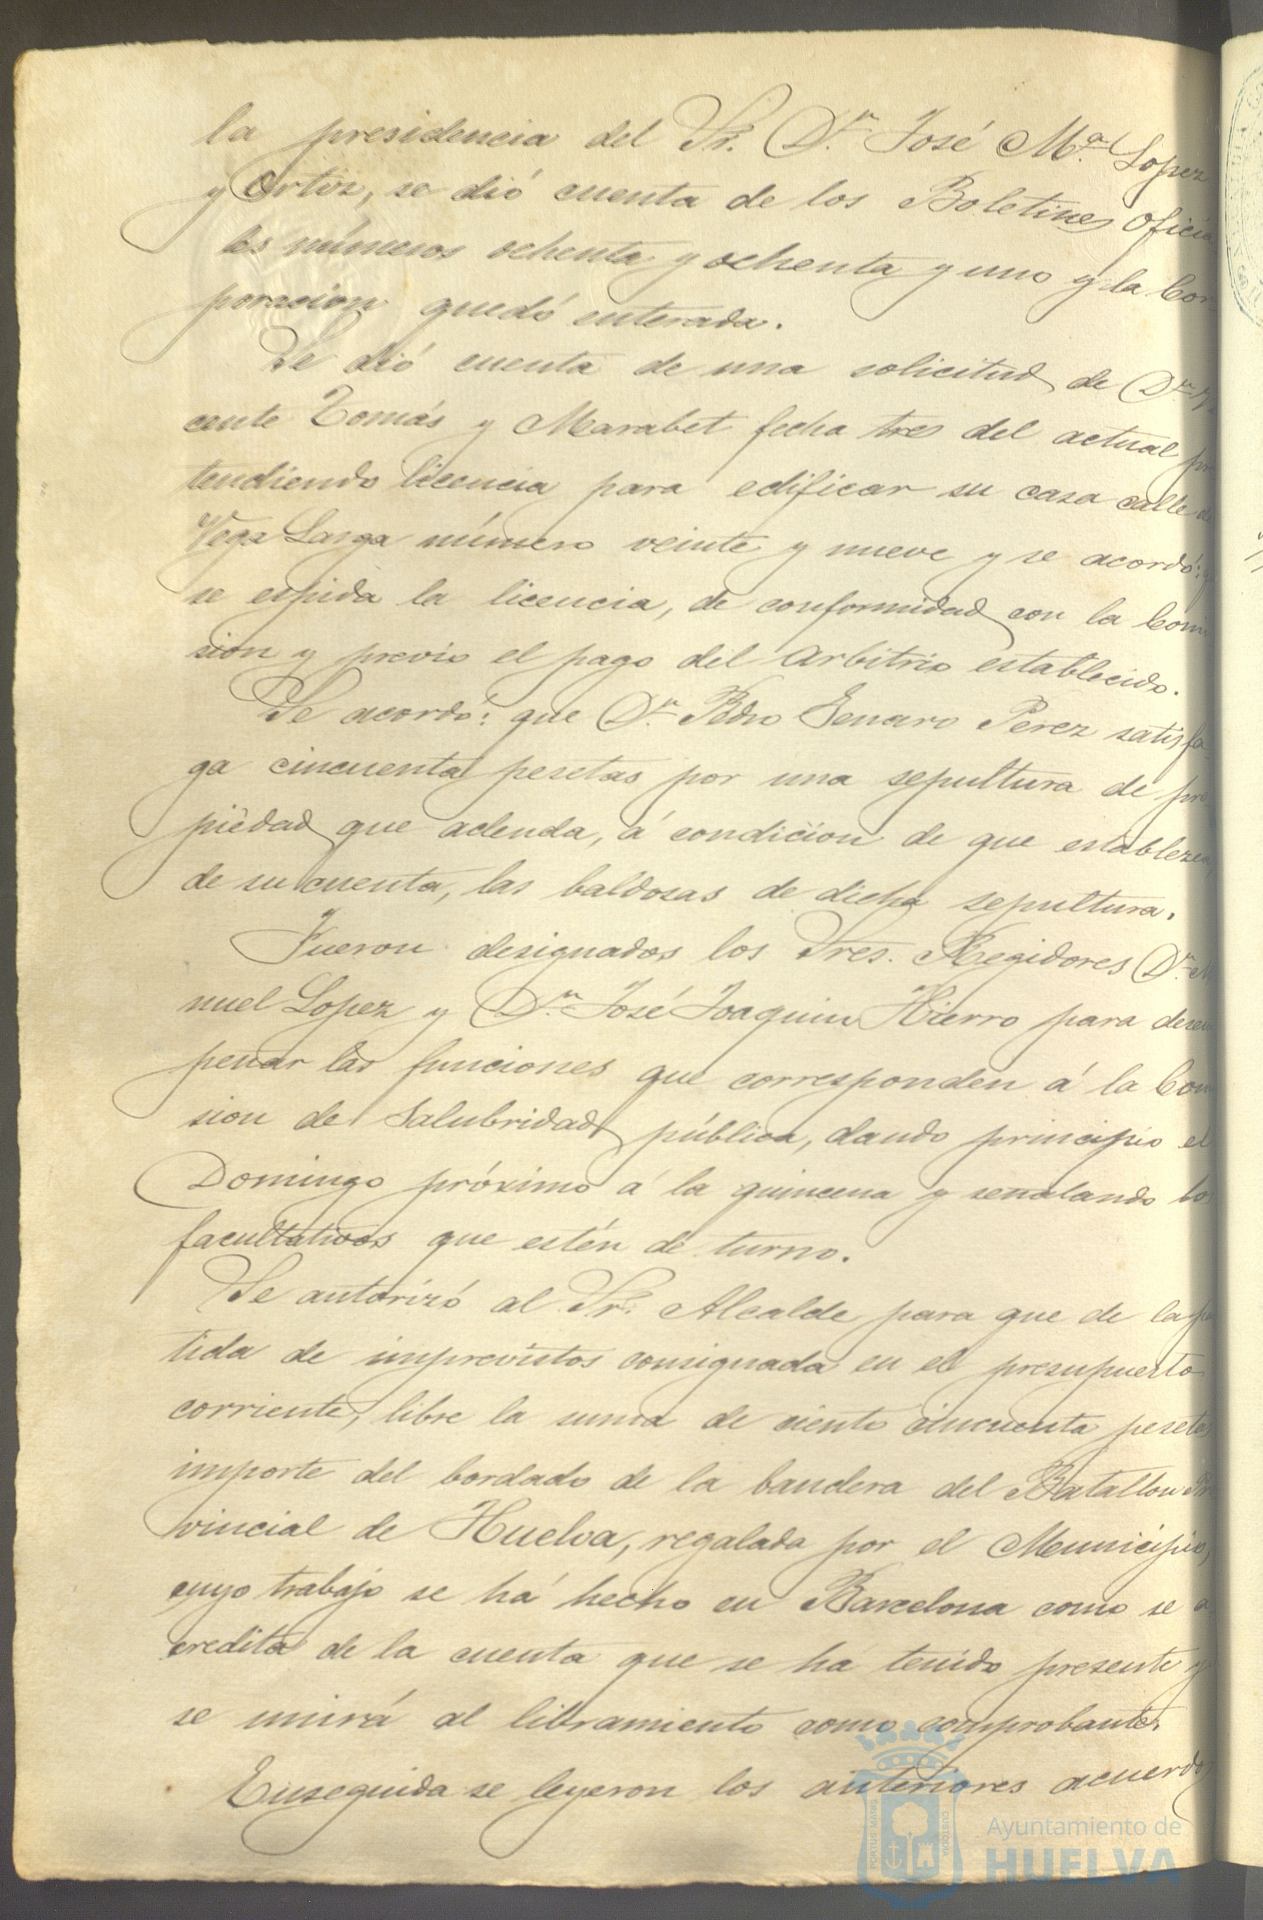 la presidencia del Sr. Dn. José Ma. Lopez
y Ortiz, se dió cuenta de los Boletines oficia
les números ochenta y ochenta y uno y la Cor
poracion quedó enterada.
Se dió cuenta de una solicitud de Dn.
cente Tomás y Marabet fecha tres del actual pre
tendiendo licencia para edificar su casa calle de
Vega Larga número veinte y nueve y se acordó:
se espida la licencia, de conformidad con la Comi
sion y previo el pago del arbitrio establecido.
Se acordó: que Dn. Pedro Genaro Perez satisfa-
ga cincuenta pesetas por una sepultura de pro
piedad que adeuda, á condicion de que establezca,
de su cuenta, las baldosas de dicha sepultura.
Fueron designados los Sres. Regidores Dn. Ma
nuel Lopez y Dn. José Joaquin Hierro para desem
peñar las funciones que corresponden á la Comi
sion de Salubridad pública, dando principio el
Domingo próximo á la quincena y señalando los
facultativos que estén de turno.
Se autorizó al Sr. Alcalde para que de la par
tida de imprevistos consignada en el presupuesto
corriente, libre la suma de ciento cincuenta pesetas
importe del bordado de la bandera del Batallon Pro
vincial de Huelva, regalada por el Municipio,
cuyo trabajo se há hecho en Barcelona como se a
credita de la cuenta que se ha tenido presente y
se unirá al libramiento como comprobante.
Enseguida se leyeron los anteriores acuerdos
PORTUS MARIS
CUSTODIA
Ayuntamiento de
HUELVA